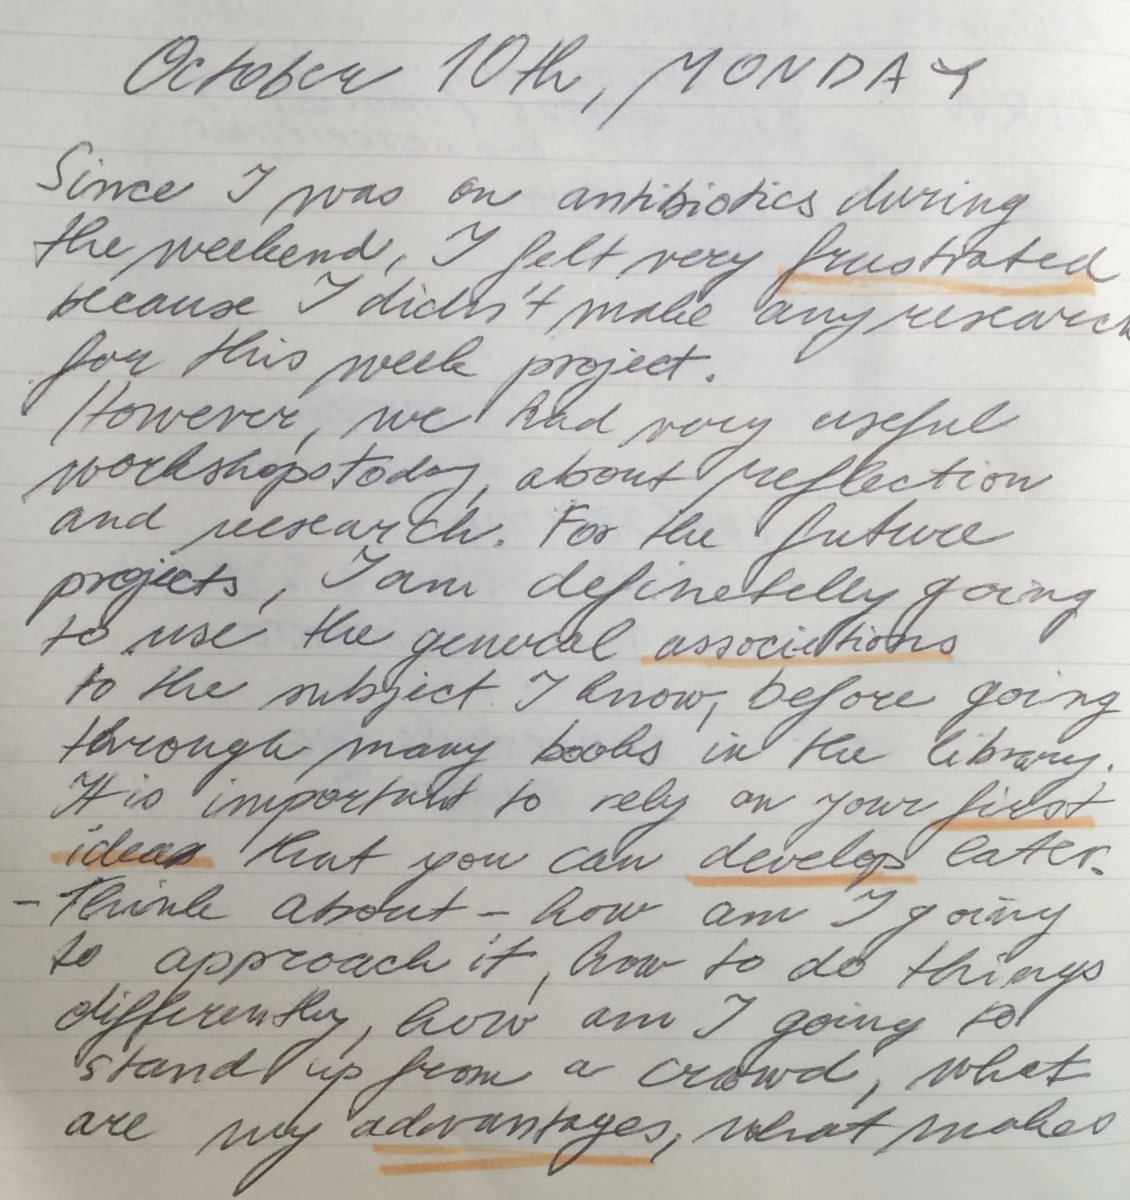 October 10th, MONDAY
Since I was on antibiotics during
the weekend, I felt very frustrated
because I didn't make any research
for this week project.
However, we had very useful
workshops today, about reflection
and research. For the future
projects, I am definetelly going
to use the general associations
to the subject I know, before going
through many books in the library.
It is important to rely on your first
ideas that you can develop later.
- Think about - how am I going
to approach it, how to do things
differently, how am I going to
stand up from a crowd, what
are my advantages, what makes